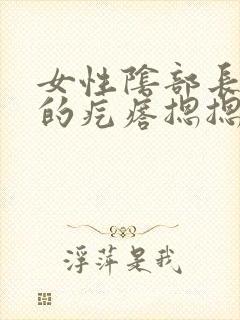 女性陰部長
的疙瘩摁摁
浮萍是我